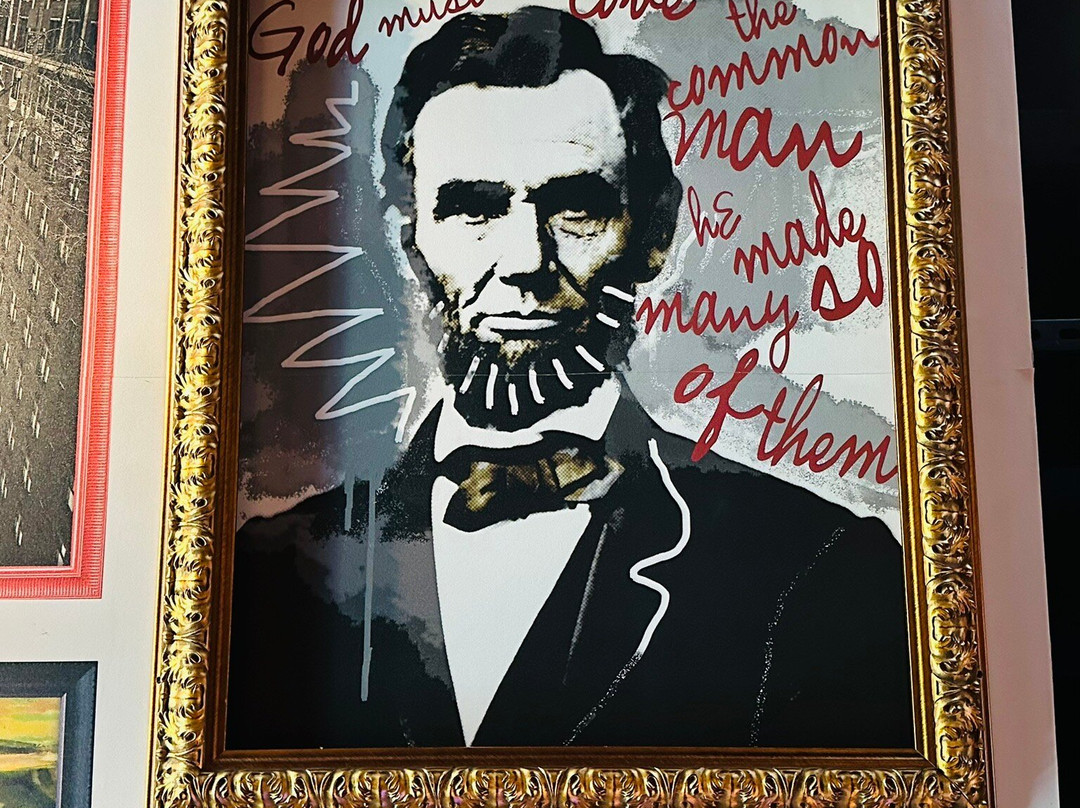 God must love the
common
man
he
made
many so
of
them